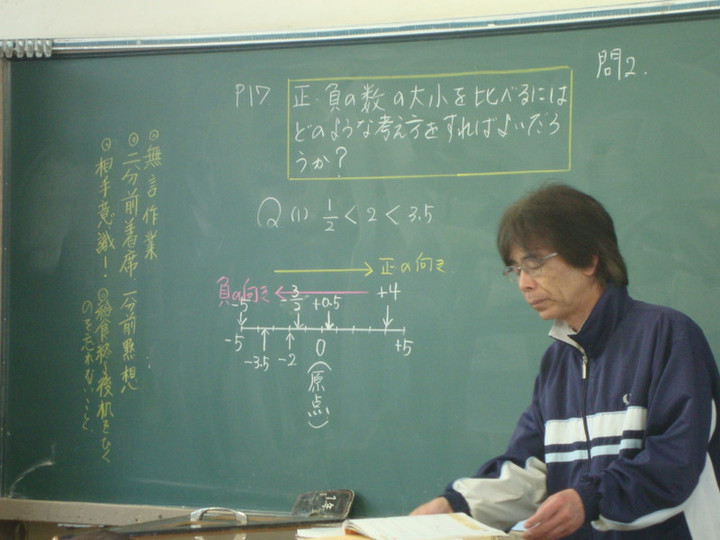 問2.
P17
正・負の数の大小を比べるには
どのような考え方をすればよいだろ
うか?
Q (1) 1/2 < 2 < 3.5
正の向き
負の向き
-5 -3/2 +0.5 +4
-5 -3.5 -2 0 +5
(原点)
◎無言作業
◎二分前着席 一分前黙想
◎相手意識!
◎給食終了後机をひく
のを忘れないこと.
1年